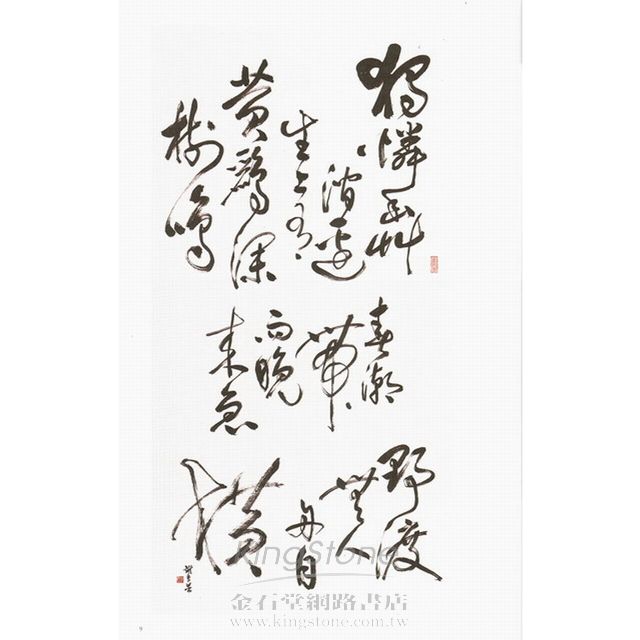 獨憐幽艸
澗邊
生上有
黃鸝深
樹鳴
春潮
帶
雨晚
來急
野渡
無人
舟自
橫
KingStone
金石堂網路書店
www.kingstone.com.tw
9